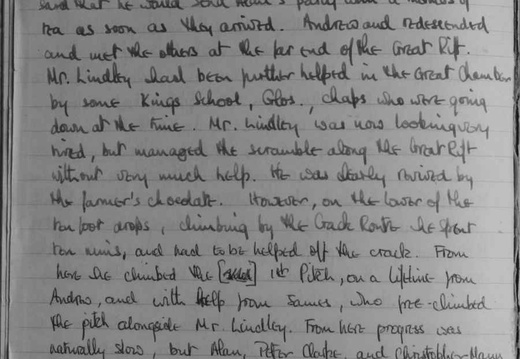 said that he would send Mum's party down a thermos of
tea as soon as they arrived. Andrew and redescended
and met the others at the far end of the Great Rift.
Mr. Lindley had been further helped in the Great Chamber
by some Kings School, Glos., chaps who were going
down at the time. Mr. Lindley was now looking very
tired, but managed the scramble along the Great Rift
without very much help. He was clearly revived by
the farmer's chocolate. However, on the lower of the
ten foot drops, climbing by the Crack Route he spent
ten mins, and had to be helped off the crack. From
here he climbed the 1st Pitch, on a lifeline from
Andrew, and with help from James, who free-climbed
the pitch alongside Mr. Lindley. From here progress was
naturally slow, but Alan, Peter Clarke, and Christopher